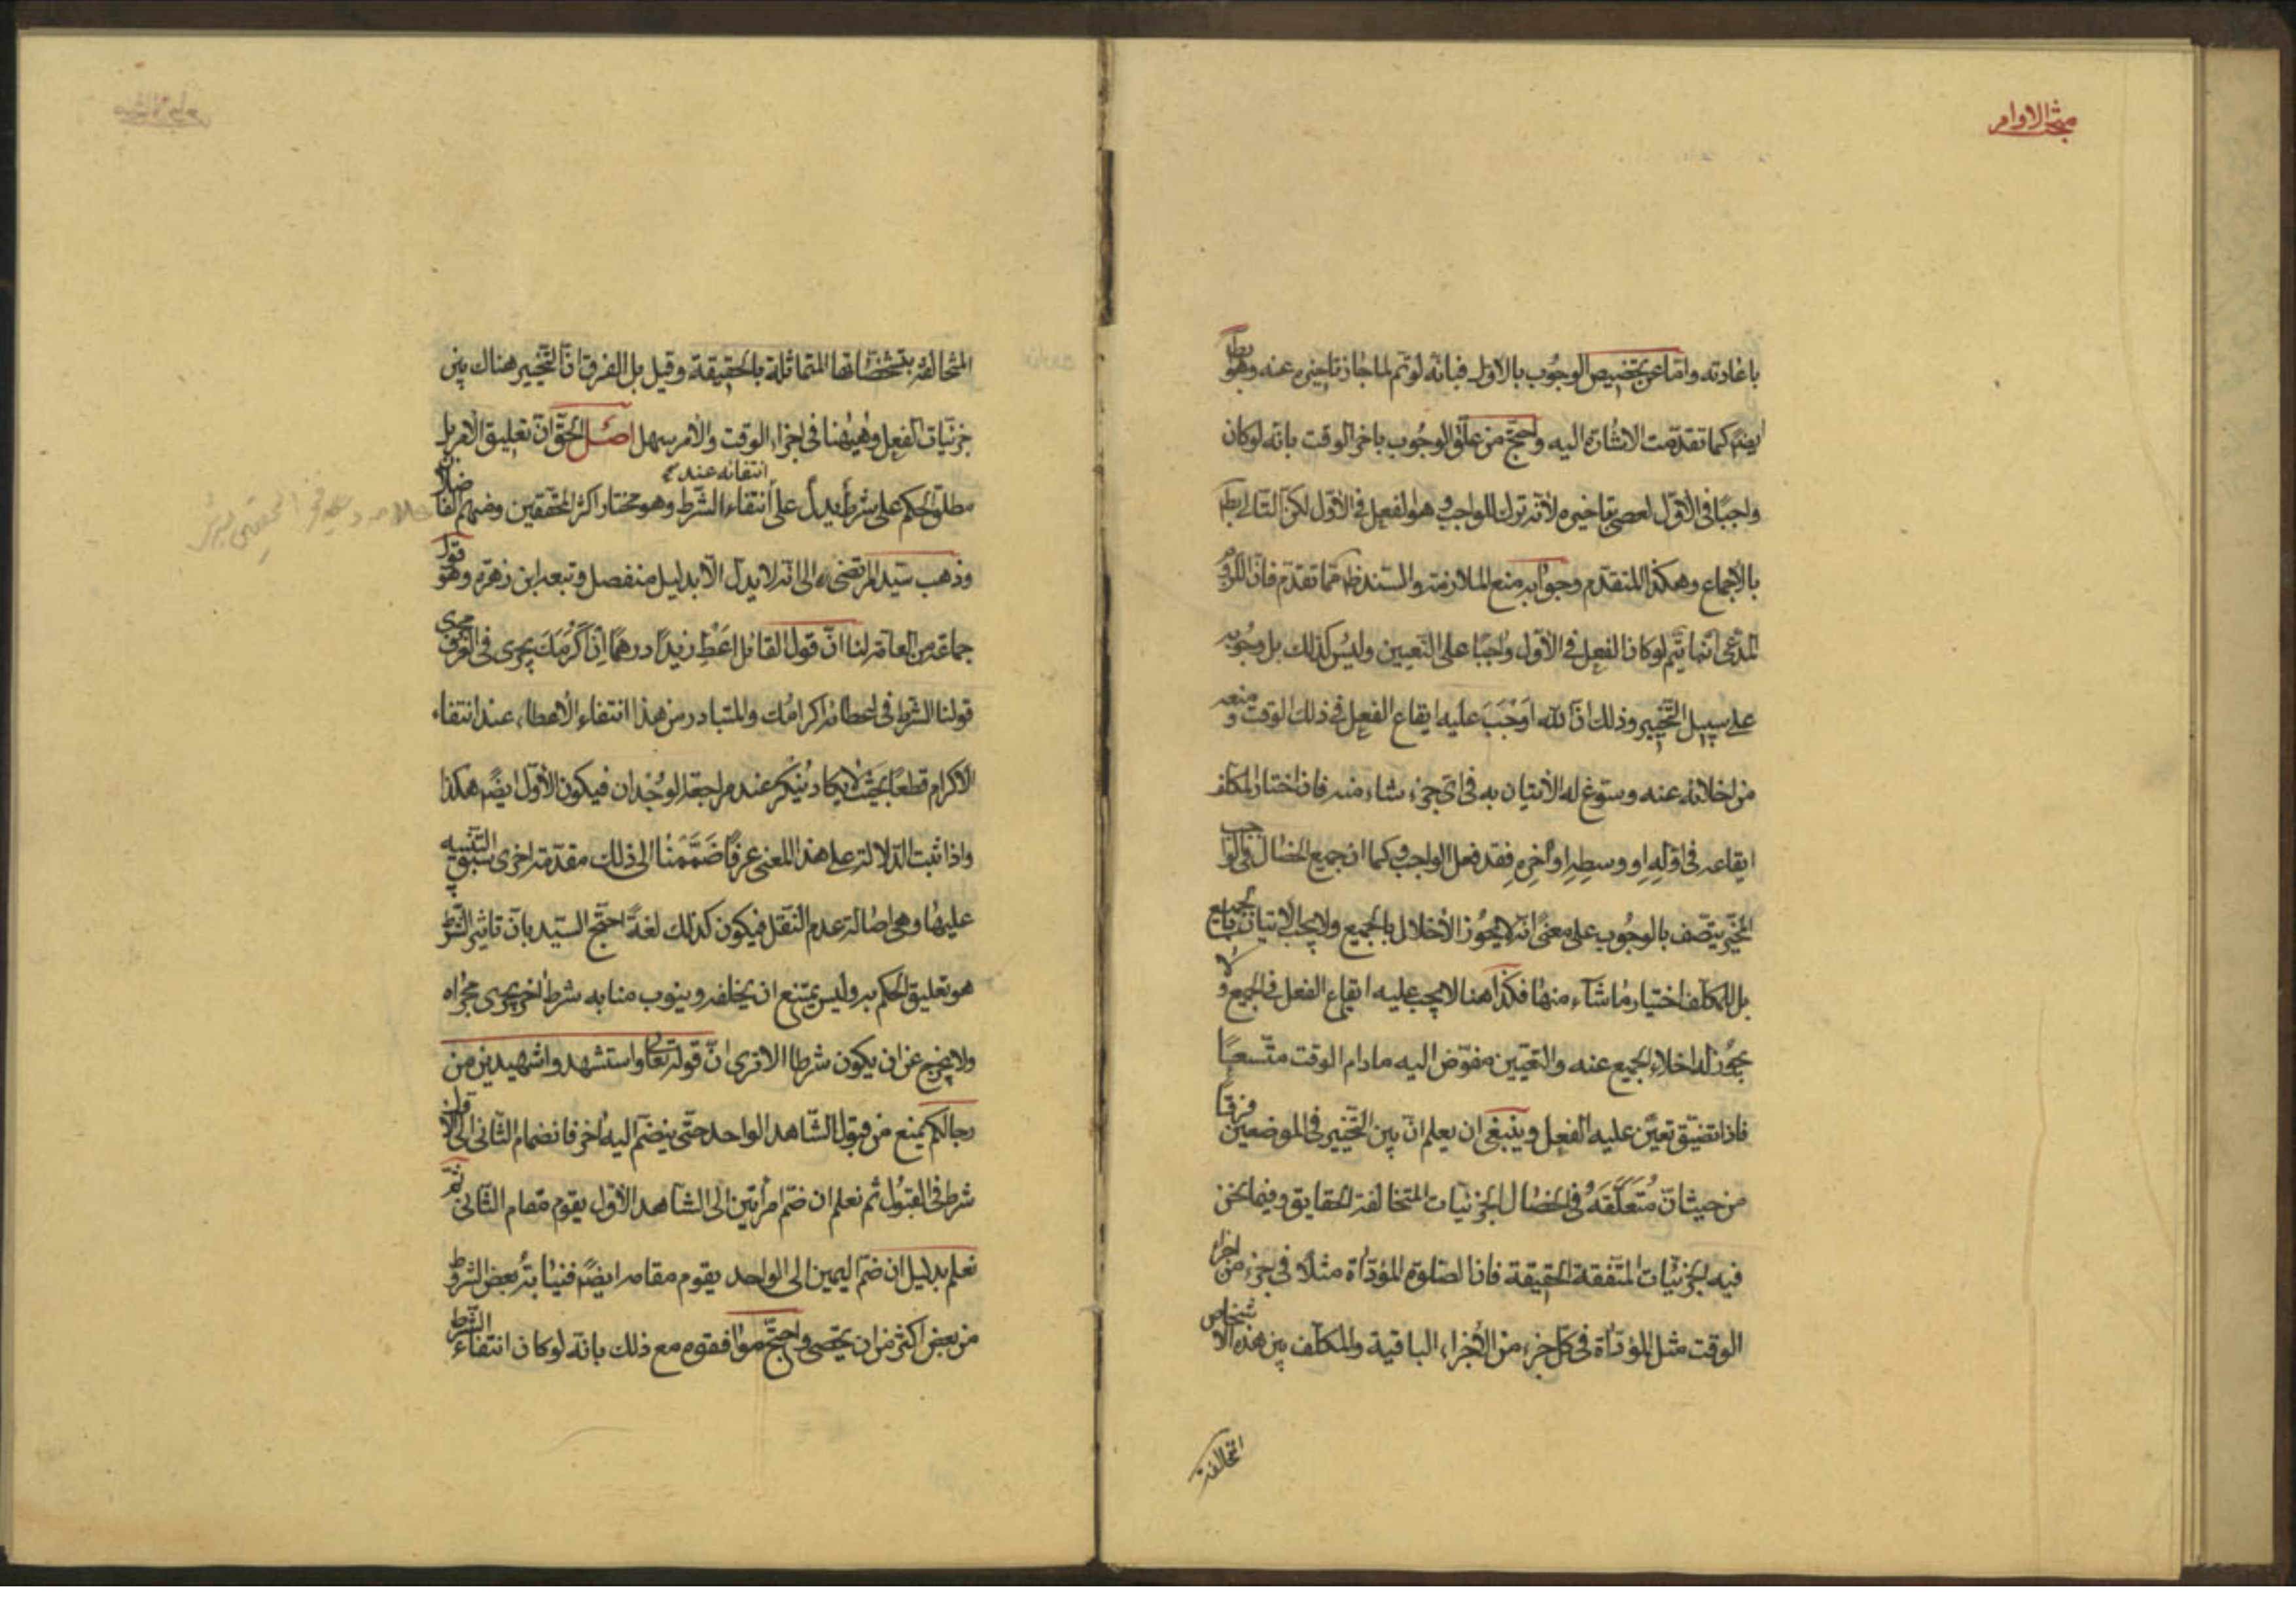 مبحث الاوامر
باعادته واما عن تخصيص الوجوب بالاول فبانه لو تم لما جاز تاخيره عنه وهو بط
ايضا كما تقدمت الاشارة اليه واحتج من علق الوجوب باخر الوقت بانه لو كان
واجبًا في الأوّل لعصى بتاخيره لأنه ترك للواجب وهو الفعل في الأوّل لكن التالي بط
بالاجماع وهكذا المتقدم وجوابه منع الملازمة والسند ظ مما تقدم فان اللزوم
المدعى انما يتم لو كان الفعل في الأوّل واجبًا على التعيين وليس كذلك بل وجوبه
على سبيل التخيير وذلك انّ الله اوجب عليه ايقاع الفعل في ذلك الوقت ومنعه
من اخلائه عنه وسوّغ له الأتيان به في اي جزء شاء منه فان اختار المكلف
ايقاعه في اوّلِهِ او وسطِهِ او اخِرِهِ فقد فعل الواجب وكما ان جميع الخصال في الواجب
المخيّر يتّصف بالوجُوب على معنىً انه لا يجُوز الأخلال بالجميع ولا يجب الأتيان بالجميع
بل للمكلف اختيار ما شاء منها فكذا هنا لا يجب عليه ايقاع الفعل في الجميع ولا
يجُوز له اخلاء الجميع عنه والتعيين مفوّض اليه ما دام الوقت متّسعًا
فاذا تضيّق تعيّن عليه الفعل وينبغي ان يعلم انّ بين التّخيير في الموضعين فرقًا
من حيث انّ مُتعلَّقَهُ في الخصال الجزئيات المتخالفة الحقايق وفيما نحن
فيه الجزئيّات المتّفقة الحقيقة فانّ الصّلوة المؤدّاة مثلًا في جزء من اجزاء
الوقت مثل المؤدّاة في كلّ جزء من الأجزاء الباقية والمكلّف بين هذه الاشخاص
المتخالفة
المتخالفة بتشخصّاتها المتماثلة بالحقيقة وقيل بل الفرق انّ التّخيير هناك بين
جزئيّات الفعل وهيهنا في اجزاء الوقت والأمر سهل اصل الحقّ انّ تعليق الأمر بل
انتفائه عند
مطلق الحكم على شرط يدلّ على انتفاء الشّرط وهو مختار اكثر المحقّقين ومنهم الفاضلان
وذهب سيّد المرتضى الى انّه لا يدلّ الّا بدليل منفصل وتبعه ابن زهرة وهو قول
جماعة من العامّة لنا انّ قول القائل اعْطِ زيدًا درهمًا ان أَكْرَمَكَ يجرى في العُرف مجرى
قولنا الشرط في اعطائه اكرامُك والمتبادر من هذا انتفاء الأعطاء عند انتفاء
الأكرام قطعًا بحيث لا يكاد يُنكر عند مراجعة الوجْدان فيكون الأوّل ايضًا هكذا
واذا ثبت الدّلالة على هذا المعنى عرفًا ضَمَمْنا الى ذلك مقدّمة اخرى سبق التّنبيه
عليها وهي اصالة عدم النّقل فيكون كذلك لغةً احتجّ السيّد بانّ تاثير الشّرط
هو تعليق الحكم به وليس يمتنع ان يخلفه وينوب منابه شرط اخر يجرى مجراه
ولا يخرج عن ان يكون شرطا الا ترى انّ قوله تعالى واستشهدوا شهيدين من
رجالكم يمنع من قبول الشّاهد الواحد حتّى ينضمّ اليه اخر فانضمام الثّاني الى الأوّل
شرط في القبُول ثم نعلم ان ضمّ امرأتين الى الشاهد الأوّل يقوم مقام الثّاني ثم
نعلم بدليل ان ضمّ اليمين الى الواحد يقوم مقامه ايضًا فنيابة بعض الشروط
من بعض اكثر من ان يحصى واحتجّ موافقوه مع ذلك بانّه لو كان انتفاء الشّرط